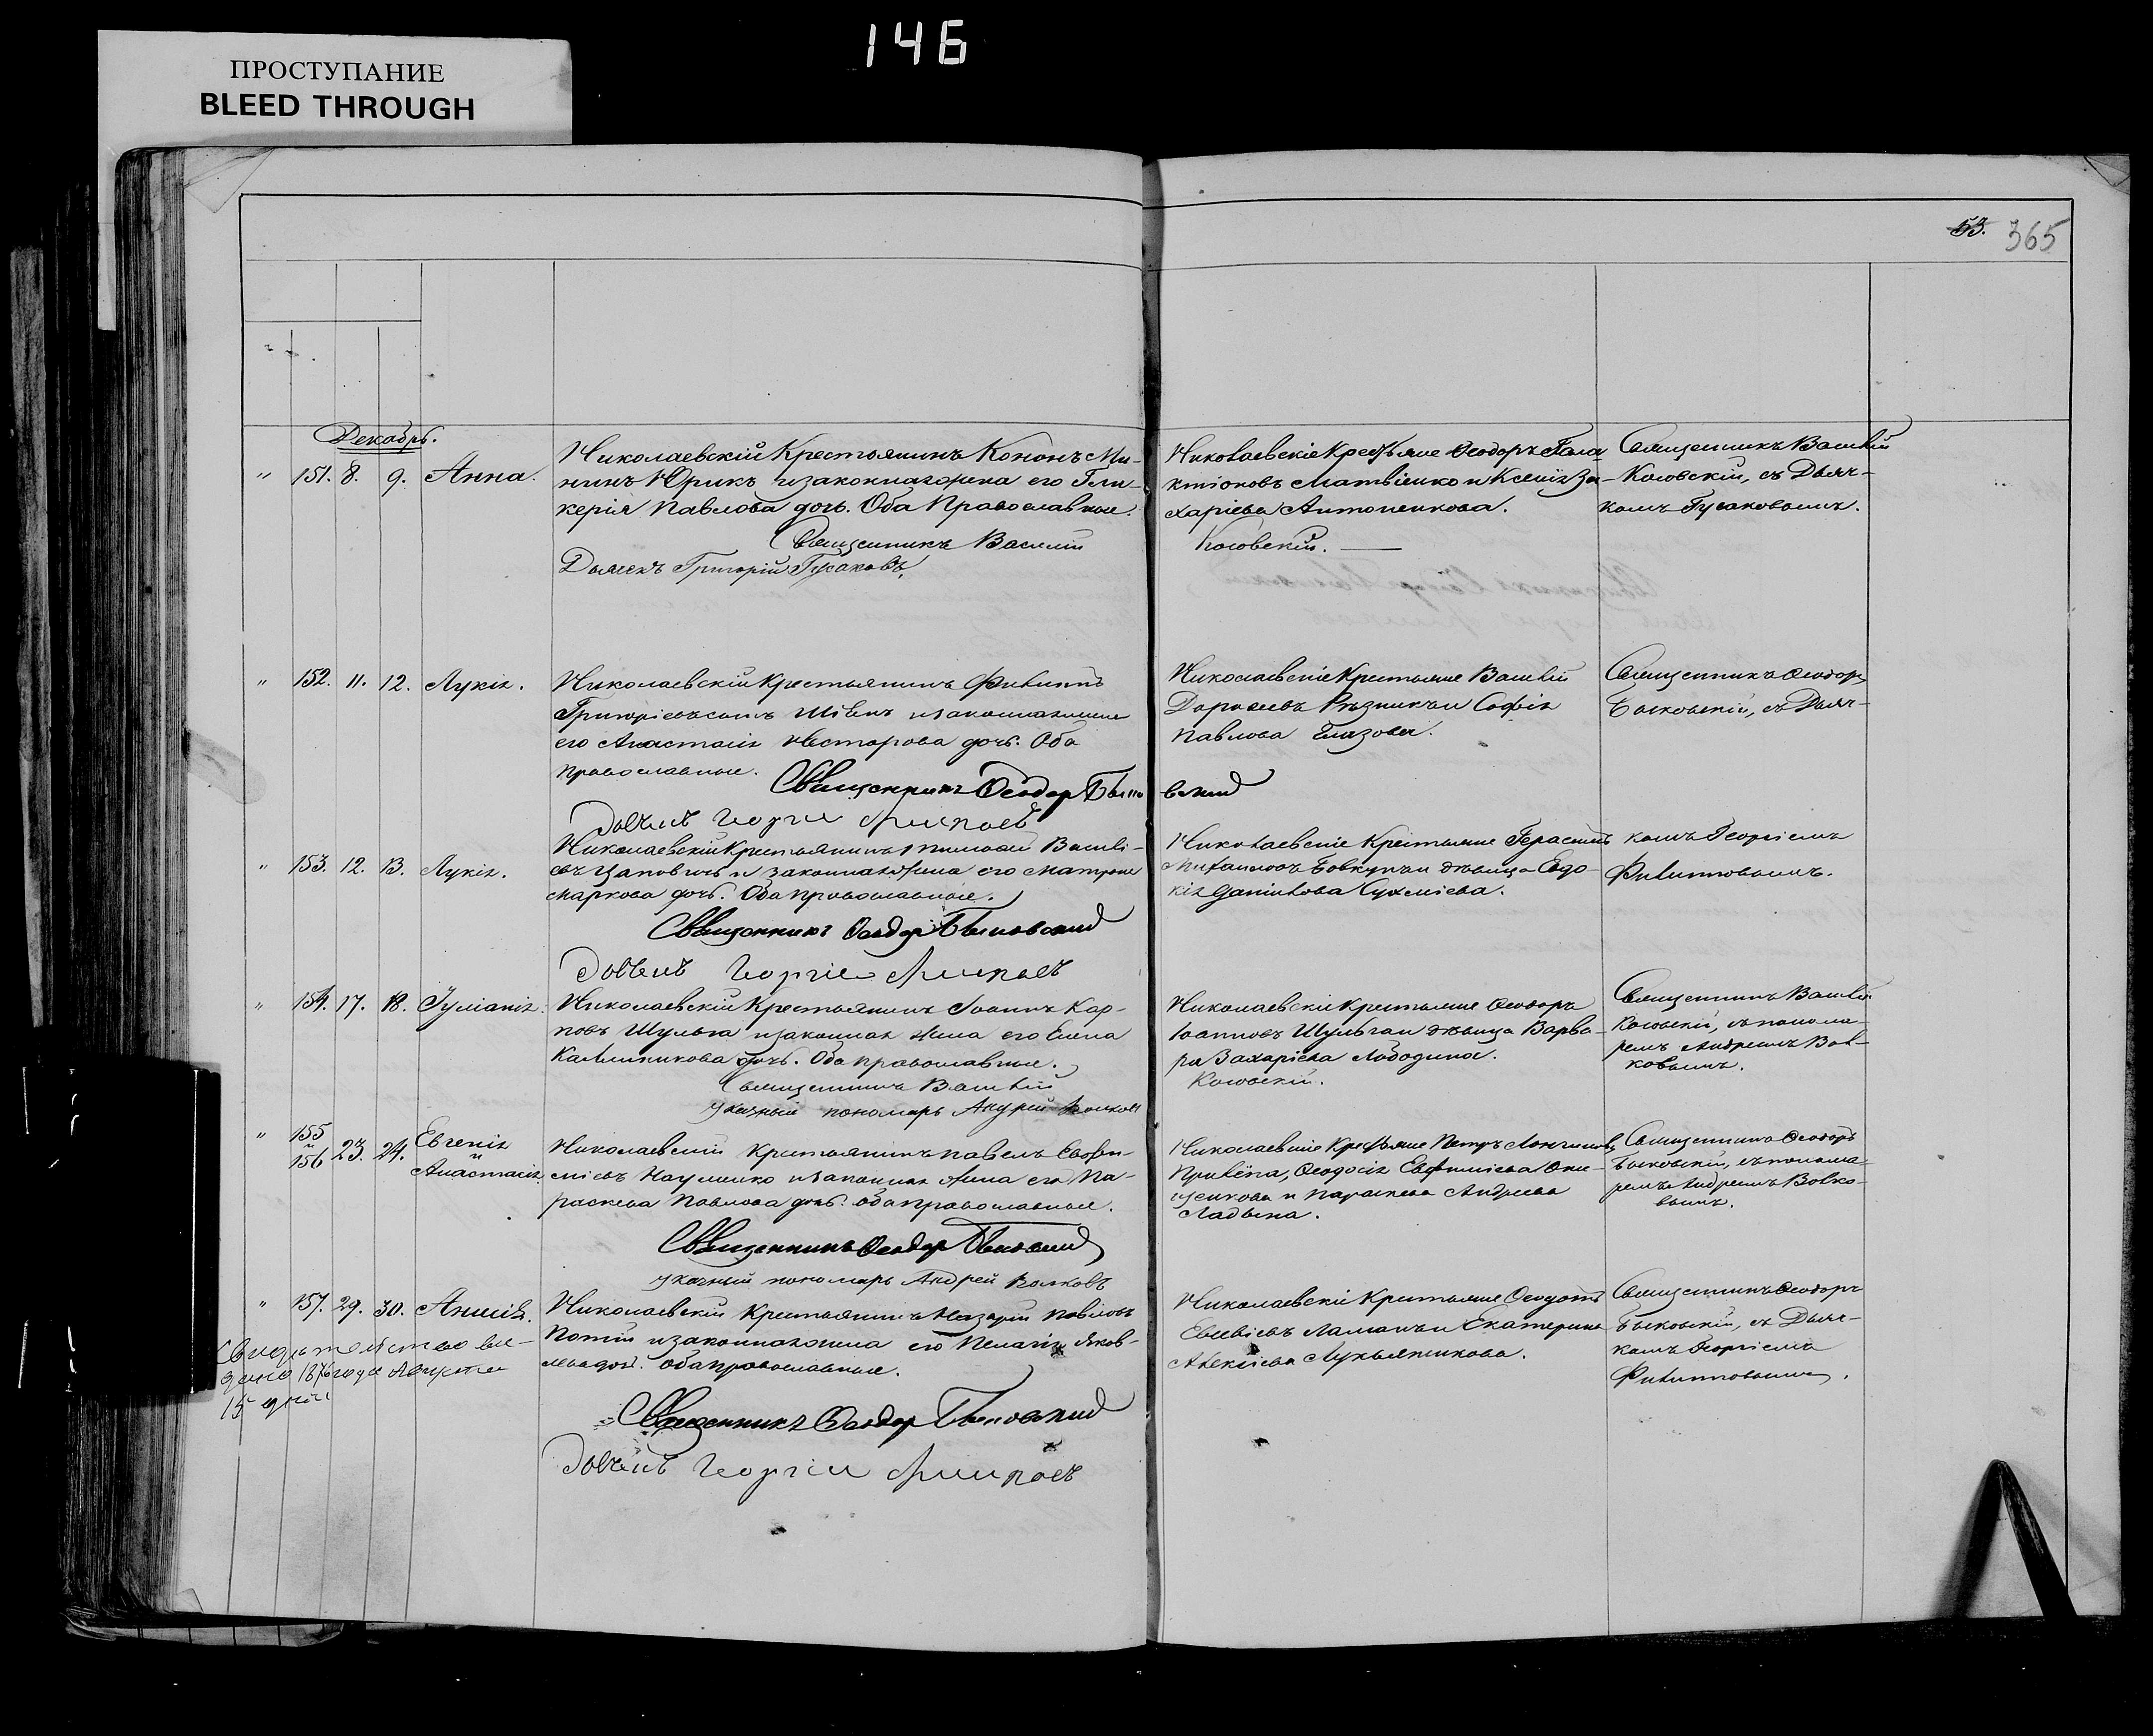 146
ПРОСТУПАНИЕ
BLEED THROUGH
53. 365
Декабрь.
" 151. 8. 9. Анна.
Николаевскій Крестьянинъ Кононъ Ми-
нинъ Юрикъ и законная жена его Гли-
керія Павлова дочь. Оба Православные.
Священникъ Василій Косовскій.
Дьячекъ Григорій Гусаковъ.
Николаевскіе Крестьяне Ѳеодоръ Гала
ктіоновъ Матвіенко и Ксенія За-
харіева Антоненкова.
Священникъ Василій
Косовскій, съ Дьяч-
комъ Гусаковымъ.
" 152. 11. 12. Лукія.
Николаевскій Крестьянинъ Филиппъ
Григоріевъ сынъ и законная жена
его Анастасія Несторова дочь. Оба
православные.
Священникъ Ѳеодор Быковский
Дьячекъ Георгий Филиповъ
Николаевскіе Крестьяне Василій
Дороѳеевъ Рѣзникъ и Софія
Павлова
Священникъ Ѳеодоръ
Быковскій, съ Дьяч-
комъ Георгіемъ
Филипповымъ.
" 153. 12. 13. Лукія.
Николаевскій Крестьянинъ Тимоѳей Василі-
евъ и законная жена его Матрона
Маркова дочь. Оба православные.
Священникъ Ѳеодор Быковский
Дьячекъ Георгий Филиповъ
Николаевскіе Крестьяне Герасимъ
Михаиловъ Бовкунъ и дѣвица Евдо-
кія Даніилова
" 154. 17. 18. Іуліанія.
Николаевскій Крестьянинъ Іоаннъ Кар-
повъ Шульга и законная жена его Елена
Каллиникова дочь. Оба православные.
Священникъ Василій Косовскій.
указный пономарь Андрей Волковъ
Николаевскіе Крестьяне Ѳеодоръ
Іоанновъ Шульга и дѣвица Варва-
ра Захаріева Лободина.
Священникъ Василій
Косовскій, съ понома-
ремъ Андреемъ Вол-
ковымъ.
" 155 и 156 23. 24. Евгенія и Анастасія.
Николаевскій Крестьянинъ Павелъ Евѳи-
міевъ Науменко и законная жена его Па-
раскева Павлова дочь. Оба православные.
Священникъ Ѳеодор Быковский
указный пономарь Андрей Волковъ
Николаевскіе Крестьяне Петръ Лонгиновъ
Ѳеодосія Евфиміева Они-
щенкова и Параскева Андреева
Ладына.
Священникъ Ѳеодоръ
Быковскій, съ понома-
ремъ Андреемъ Волко-
вымъ.
" 157. 29. 30. Анисія.
Николаевскій Крестьянинъ Назарій Павловъ
и законная жена его Пелагія Яков-
лева дочь. Оба православные.
Священникъ Ѳеодор Быковский
Дьячекъ Георгий Филиповъ
Николаевскіе Крестьяне Ѳеодотъ
Евсевіевъ и Екатерина
Алексіева Лукьянчикова.
Священникъ Ѳеодоръ
Быковскій, съ Дьяч-
комъ Георгіемъ
Филипповымъ.
Свидѣтельство вы-
дано 1876 года Августа
15 дня